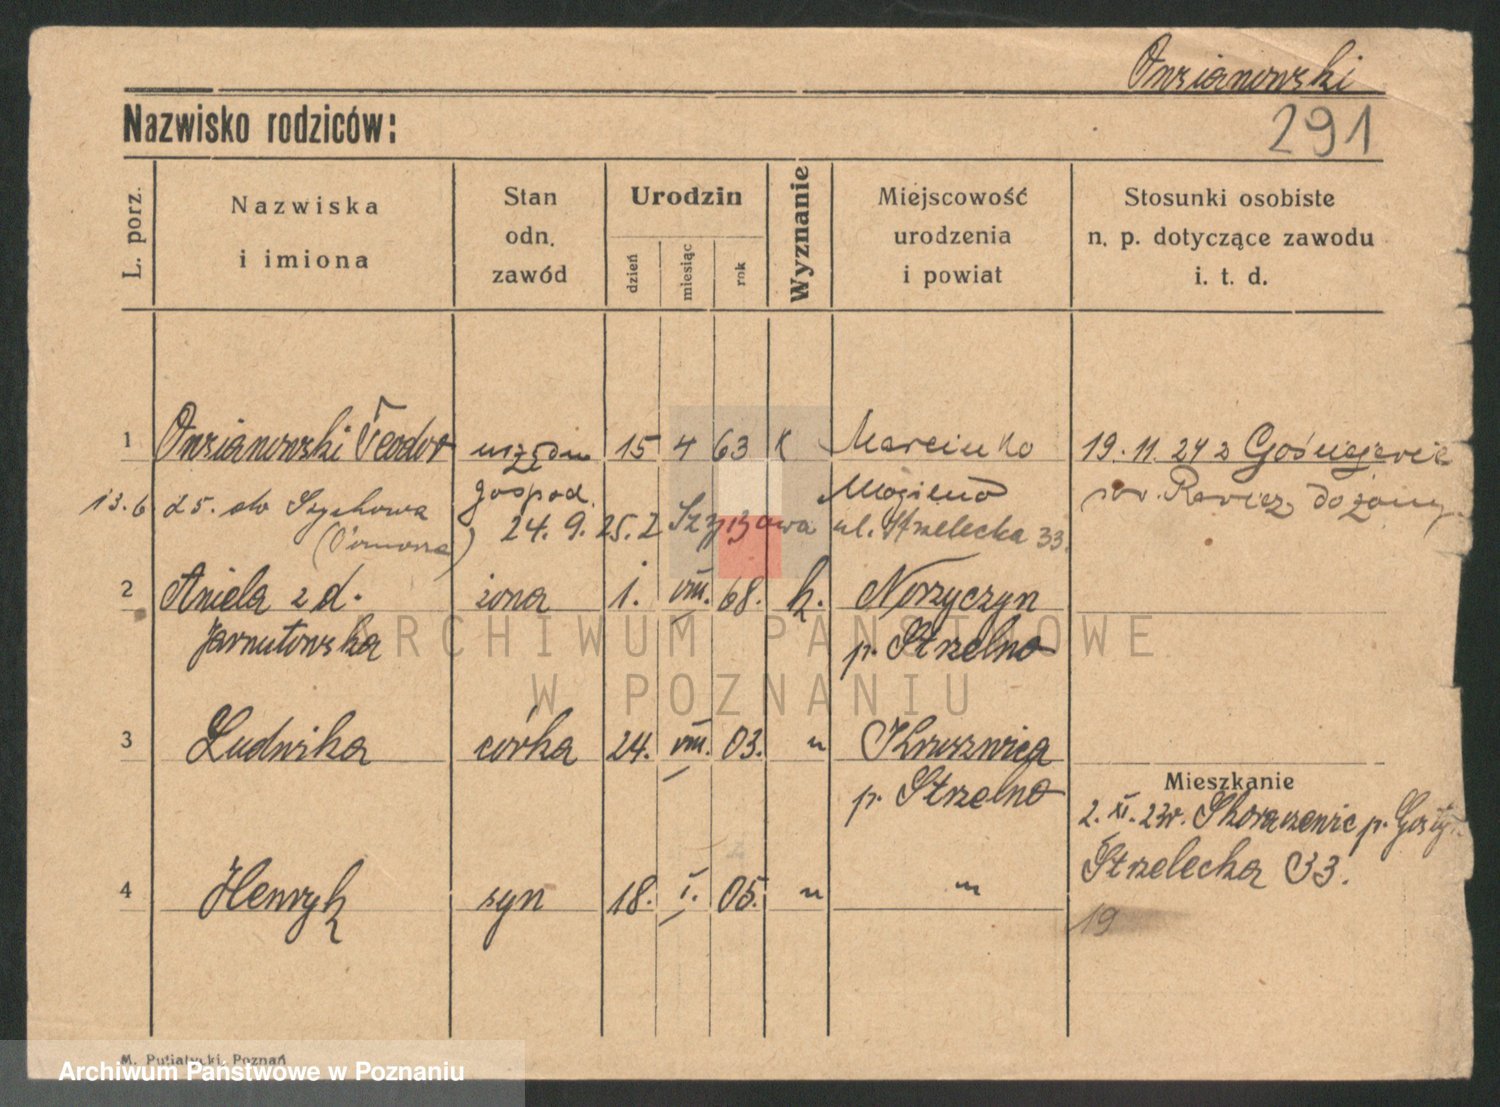 Owsianowski
Nazwisko rodziców:
291
L. porz.
Nazwiska
i imiona
Stan
odn.
zawód
Urodzin
dzień
miesiąc
rok
Wyznanie
Miejscowość
urodzenia
i powiat
Stosunki osobiste
n. p. dotyczące zawodu
i. t. d.
1 Owsianowski Teodor urzędn 15 4 63 k Marcinko 19. 11. 24 z
gospod. Mogilno
13.6 25. do 24. 9. 25. z ul. Strzelecka 33.
2 Aniela z d. żona 1. VIII. 68. k. 
Jarnutowska p. Strzelno
3 Ludwika córka 24. VIII. 03. " Kruszwica
p. Strzelno
Mieszkanie
2. XI. 23r.
Strzelecka 33.
4 Henryk syn 18. I. 05. " "
19
ARCHIWUM PAŃSTWOWE
W POZNANIU
M. Putiatycki, Poznań
Archiwum Państwowe w Poznaniu